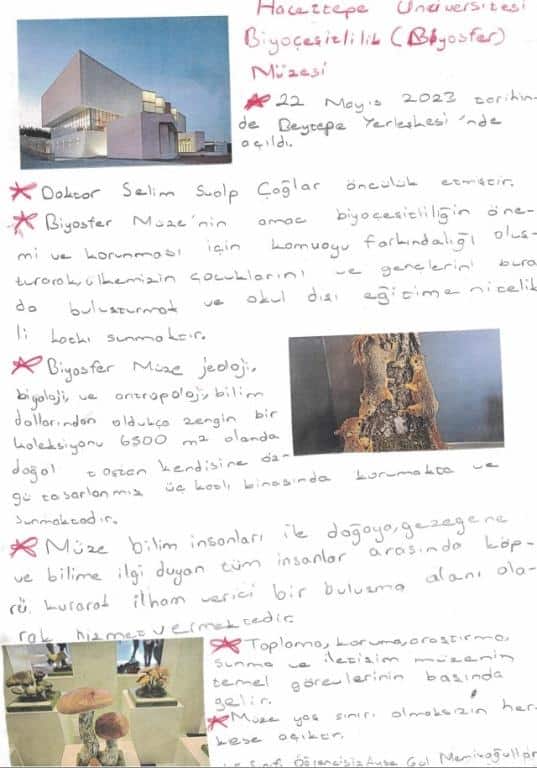 Hacettepe Üniversitesi
Biyoçeşitlilik (Biyosfer)
Müzesi
22 Mayıs 2023 tarihin-
de Beytepe Yerleşkesi'nde
açıldı.
Doktor Selim Sualp Çağlar öncülük etmiştir.
Biyosfer Müze'nin amac biyoçeşitliliğin öne-
mi ve korunması için kamuoyu farkındalığı oluş-
turarak, ülkemizin çocuklarını ve gençlerini bura
da buluşturmak ve okul dışı eğitime nitelik
li katkı sunmaktır.
Biyosfer Müze jeoloji,
biyoloji, ve antropoloji, bilim
dallarından oldukça zengin bir
koleksiyonu 6500 m2 alanda
doğal taştan kendisine öz-
gü tasarlanmış üç katlı binasında korumakta ve
sunmaktadır.
Müze bilim insanları ile doğaya, gezegene
ve bilime ilgi duyan tüm insanlar arasında köp-
rü kurarak ilham verici bir buluşma alanı ola-
rak hizmet vermektedir.
Toplama, koruma, araştırma,
sunma ve iletişim müzenin
temel görevlerinin başında
gelir.
Müze yaş sınırı olmaksızın her-
kese açıktır.
Sınıfı Öğrencisi: Ayşe Gül